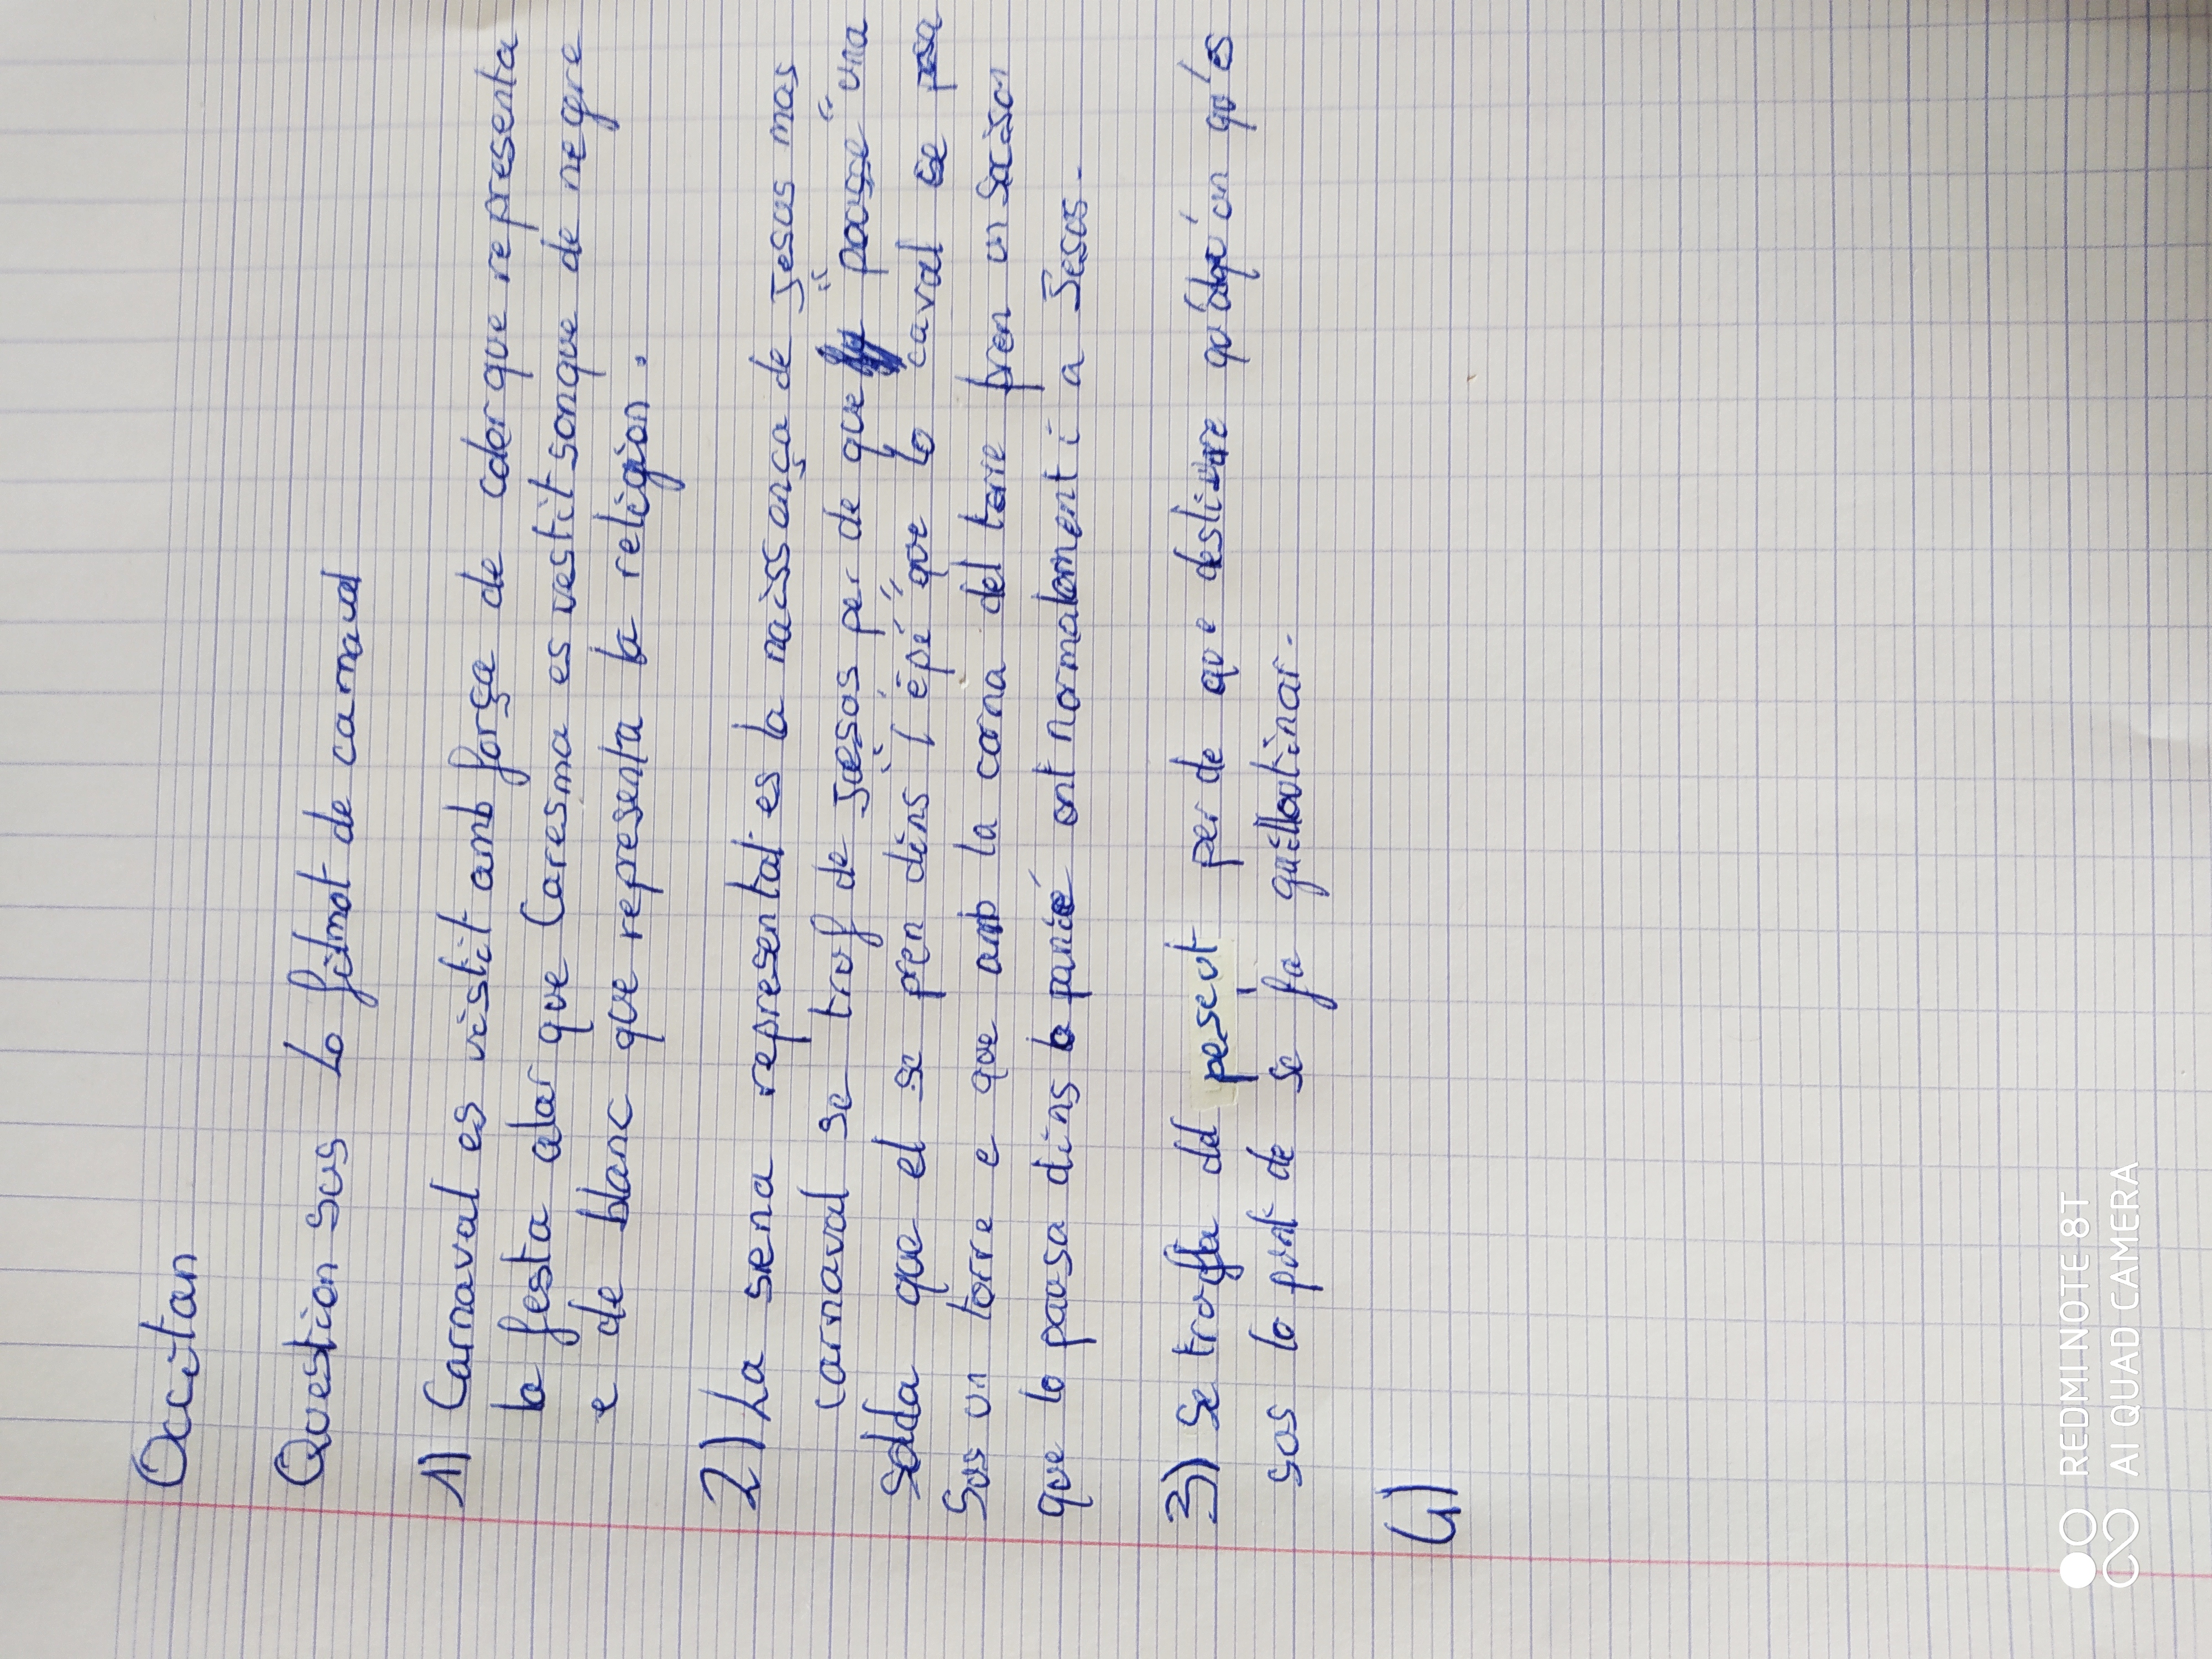 Occitan
Question sus Lo filmot de carnaval
1) Carnaval es vistit amb força de color que representa
la festa alar que Caresma es vestit sonque de negre
e de blanc que representa la religion.
2) La sena representat es la naissença de Jesus mas
carnaval se trof de Jesus per de que "pousse" una
solda que el se pren dins l'"épé" que lo caval se posa
sus un torre e que amb la corna del torre pren un saisson
que lo pausa dins lo panié ont normalament i a Jesus.
3) Se troffa del peseut per de que desliure qu'alqu'un qu'es
sus lo punt de se fa guillautinar.
4)
REDMI NOTE 8T
AI QUAD CAMERA